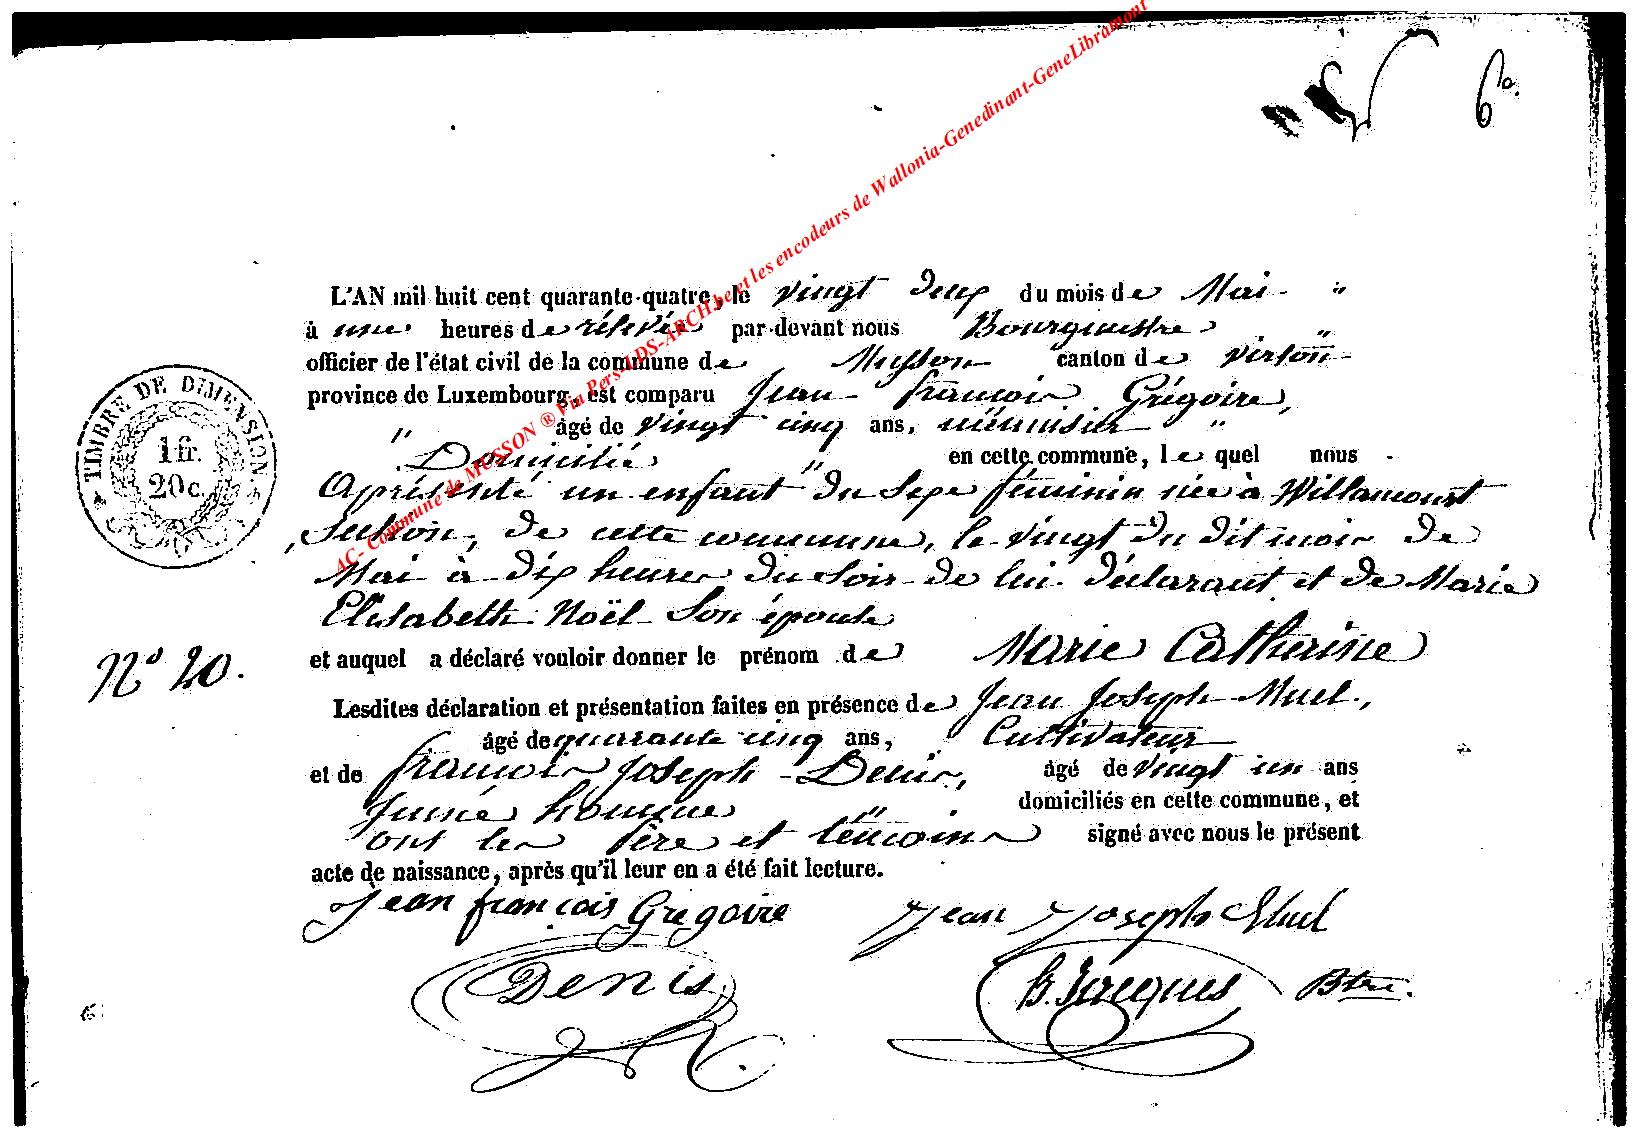 6
L'AN mil huit cent quarante-quatre, le vingt deux du mois de Mai "
à une heures de rélevée par-devant nous Bourgmestre "
officier de l'état civil de la commune de Musson canton de virton
province de Luxembourg, est comparu Jean françois Grégoire,
" âgé de vingt cinq ans, menuisier "
Domicilié " en cette commune, le quel nous
a présenté un enfant du sexe féminin née à Willancourt
Section, de cette commune, le vingt du dit mois de
Mai à dix heures du soir de lui déclarant et de Marie
Elisabeth Noël son épouse
N° 20.
et auquel a déclaré vouloir donner le prénom de Marie Catherine
Lesdites déclaration et présentation faites en présence de Jean Joseph Muel,
âgé de quarante cinq ans, Cultivateur
et de françois Joseph Denis, âgé de vingt un ans
Jeune homme " domiciliés en cette commune, et
ont les Père et témoins signé avec nous le présent
acte de naissance, après qu'il leur en a été fait lecture.
Jean françois Gregoire Jean Joseph Muel
Denis B. Jacques Btre.
TIMBRE DE DIMENSION
1 fr.
20 c.
AC- Commune de MUSSON ® Via Pers-ADS-ARCH.be et les encodeurs de Wallonia-Genedinant-GeneLibramont